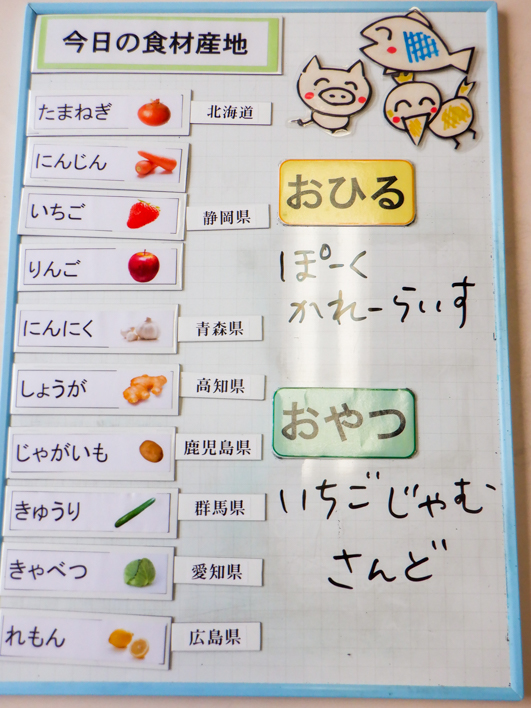 今日の食材産地
たまねぎ 北海道
にんじん
いちご 静岡県
りんご
にんにく 青森県
しょうが 高知県
じゃがいも 鹿児島県
きゅうり 群馬県
きゃべつ 愛知県
れもん 広島県
おひる
ぽーく
かれーらいす
おやつ
いちごじゃむ
さんど